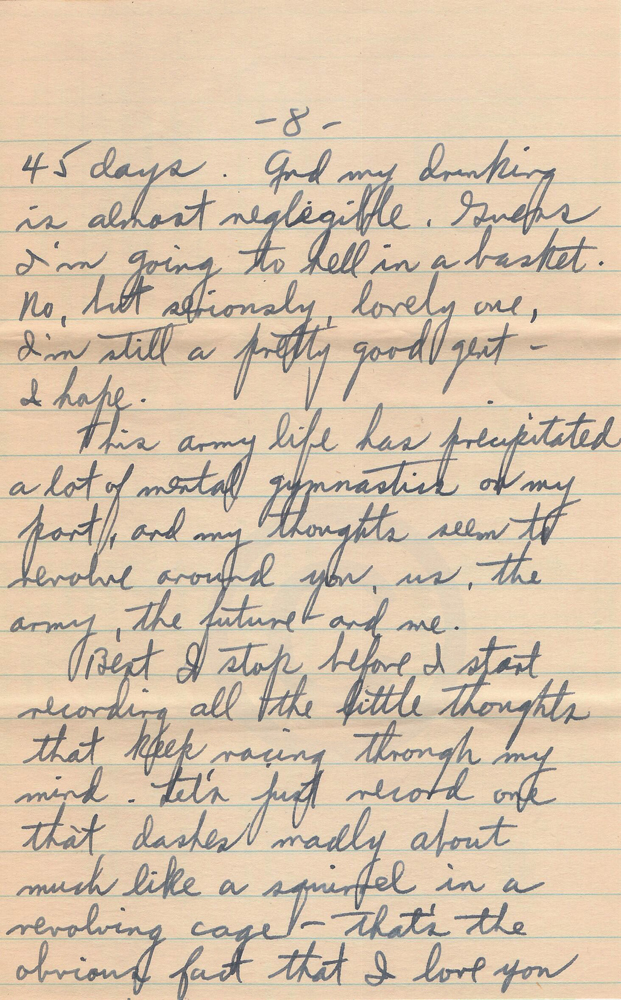 -8-
45 days. And my drinking
is almost negligible. Guess
I'm going to hell in a basket.
No, but seriously, lovely one,
I'm still a pretty good gent -
I hope.
This army life has precipitated
a lot of mental gymnastics on my
part, and my thoughts seem to
revolve around you, us, the
army, the future - and me.
Best I stop before I start
recording all the little thoughts
that keep racing through my
mind. Let's just record one
that dashes madly about
much like a squirrel in a
revolving cage - that's the
obvious fact that I love you